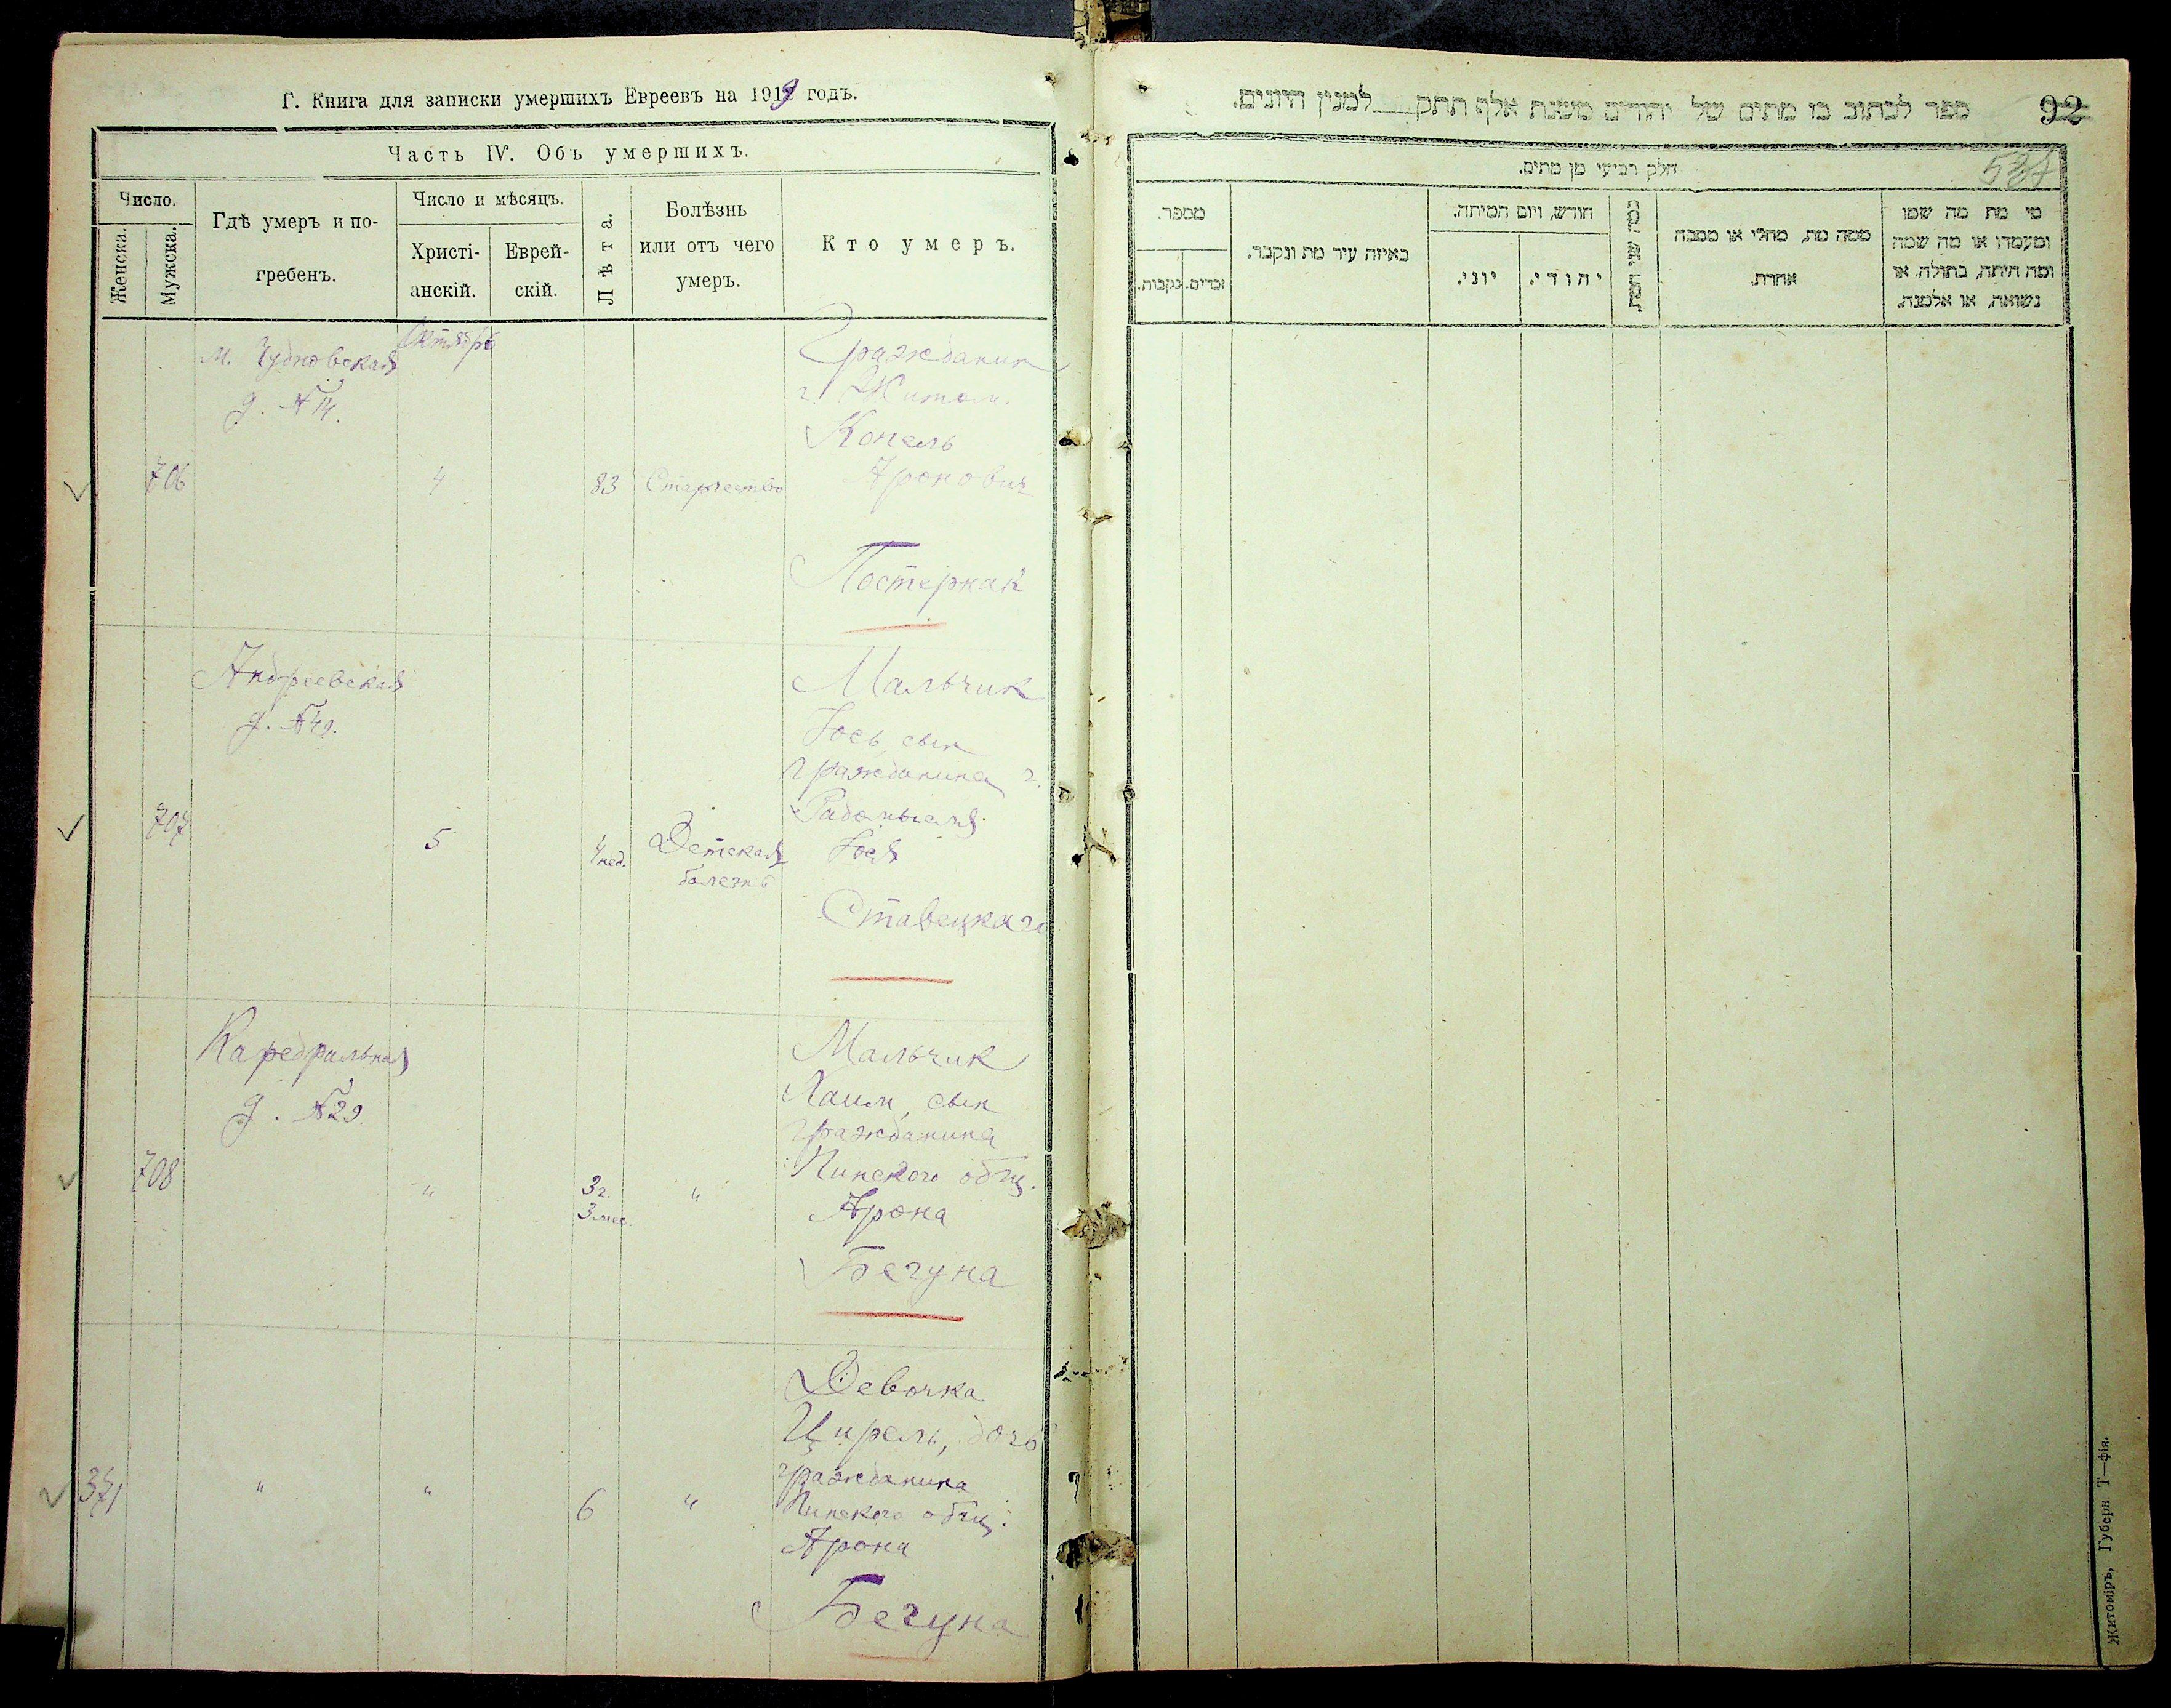 Г. Книга для записки умершихъ Евреевъ на 1919 годъ.
Часть IV. Объ умершихъ.
Число.
Женска.
Мужска.
Гдѣ умеръ и по-
гребенъ.
Число и мѣсяцъ.
Христі-
анскій.
Еврей-
скій.
Лѣта.
Болѣзнь
или отъ чего
умеръ.
Кто умеръ.
706
м. Чудновская
д. №14.
Октября
4
83
Старчество
Гражданин
г. Житом.
Копель
Аронович
Постернак
707
Андреевская
д. №49.
5
4 нед.
Детская
болезнь
Мальчик
Иось, сын
гражданина г.
Радомысля
Иося
Ставецкаго
708
Кафедральная
д. №29.
"
3 г.
3 мес.
"
Мальчик
Хаим, сын
гражданина
Пинского общ.
Арона
Бегуна
371
"
"
6
"
Девочка
Цирель, дочь
гражданина
Пинского общ.
Арона
Бегуна
ספר לכתוב בו מתים של יהודים משנת אלף תתק למנין היונים.
92
חלק רביעי מן מתים.
מספר.
נקבות.
זכרים.
באיזה עיר מת ונקבר.
חודש, ויום המיתה.
יוני.
יהודי.
כמה שני המת.
ממה מת, מחלי או מסבה
אחרת.
מי מת מה שמו
ומעמדו או מה שמה
ומה היתה, בתולה, או
נשואה, או אלמנה.
Житоміръ, Губерн Т—фія.